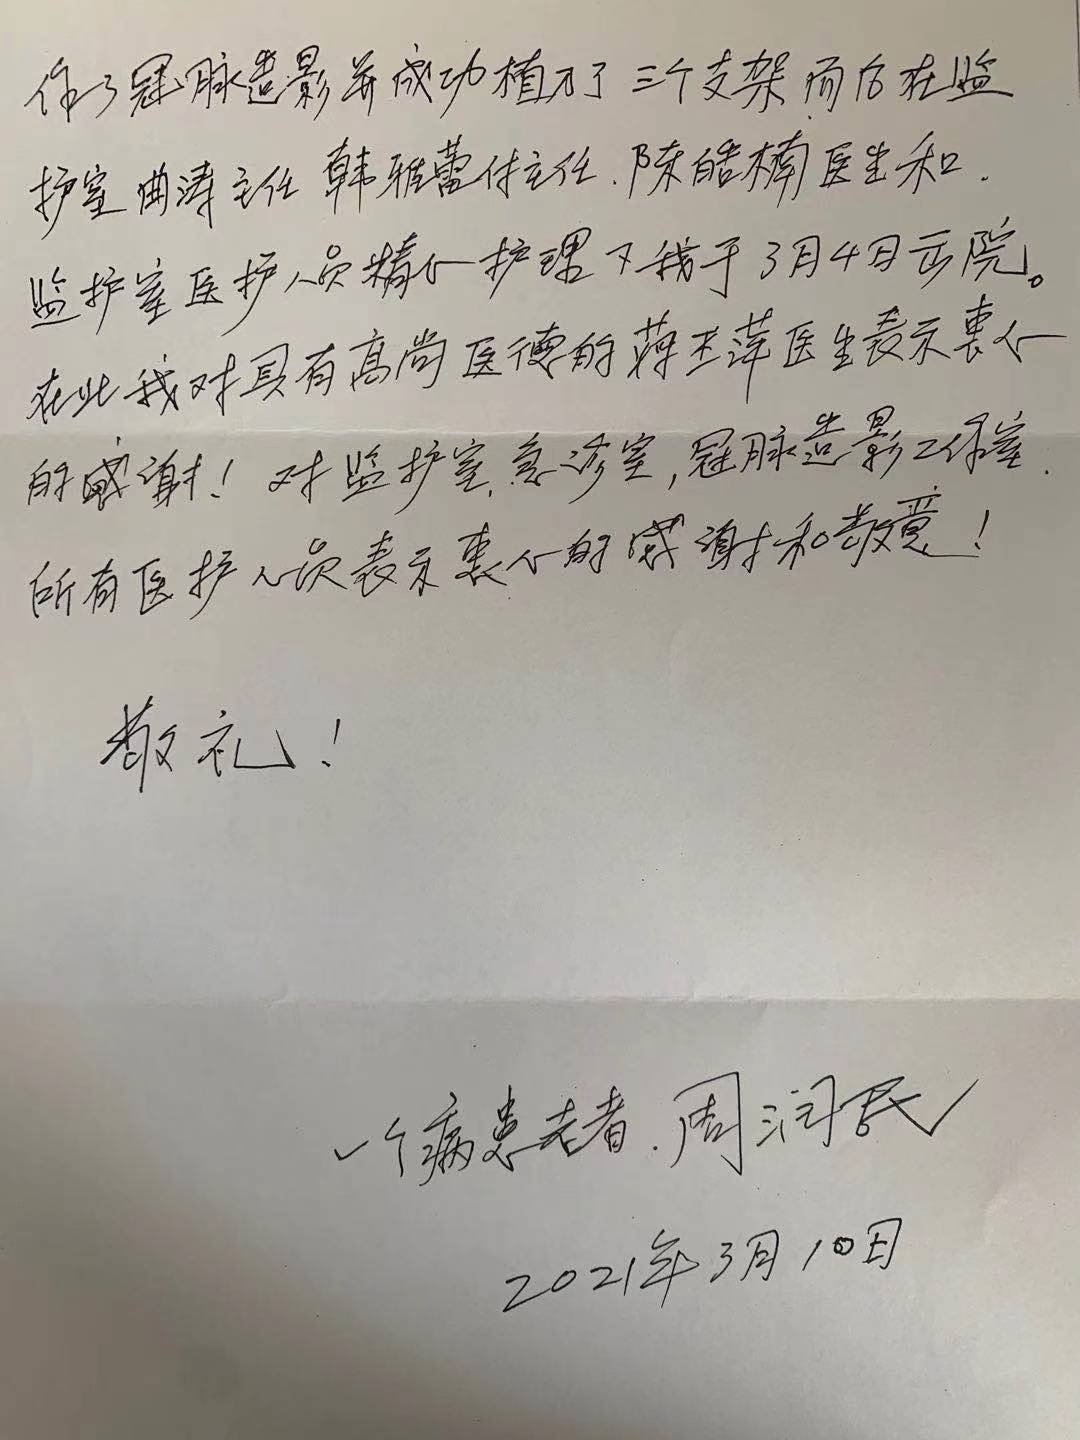 作了冠脉造影并成功植入了三个支架而后在监
护室曲涛主任 韩雅蕾付主任.陈皓楠医生和.
监护室医护人员精心护理下我于3月4日出院。
在此我对具有高尚医德的蒋玉萍医生表示衷心
的感谢！对监护室.急诊室,冠脉造影工作室.
所有医护人员表示衷心的感谢和敬意！
敬礼！
一个病患者.周润民
2021年3月10日